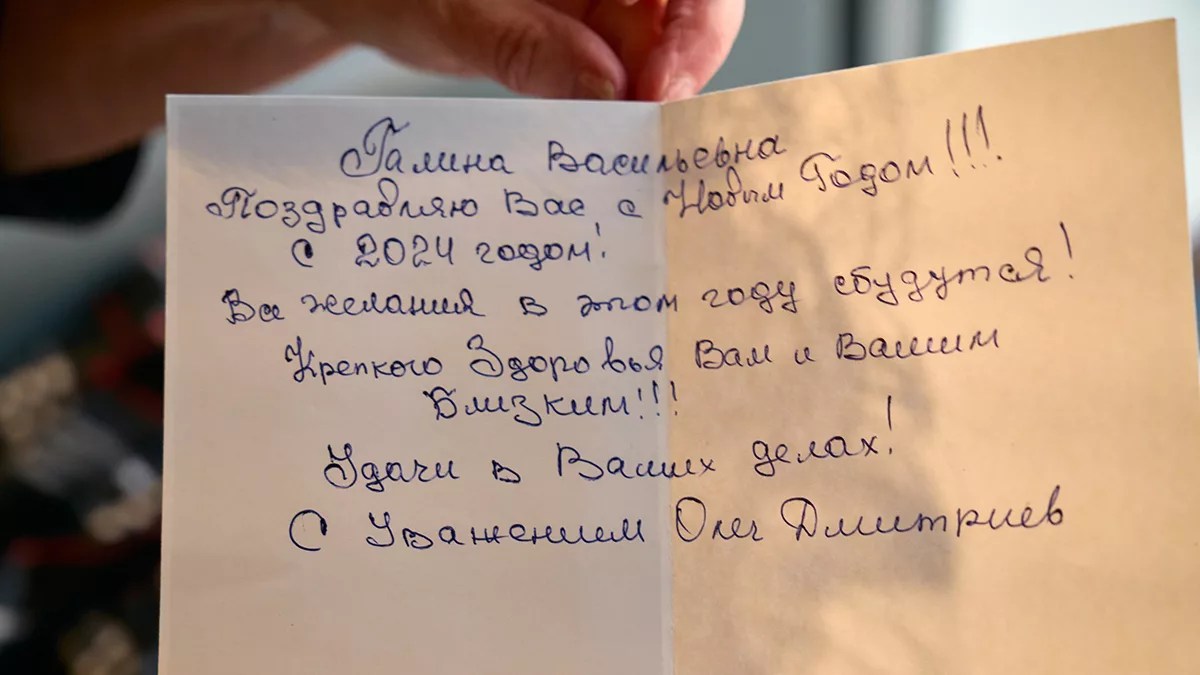 Галина Васильевна
Поздравляю Вас с Новым Годом!!!
С 2024 годом!
Все желания в этом году сбудутся!
Крепкого Здоровья Вам и Вашим
Близким!!!
Удачи в Ваших делах!
С Уважением Олег Дмитриев